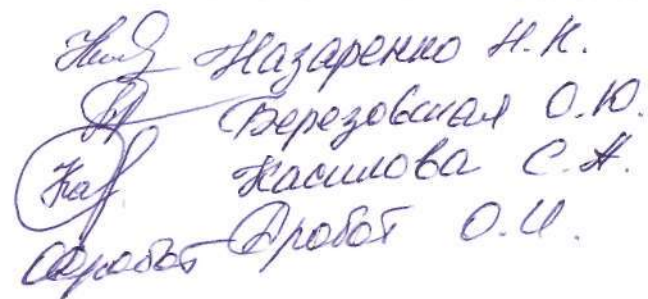 Назаренко Н.К.
Березовская О.Ю.
Касилова С.А.
Дробот О.И.